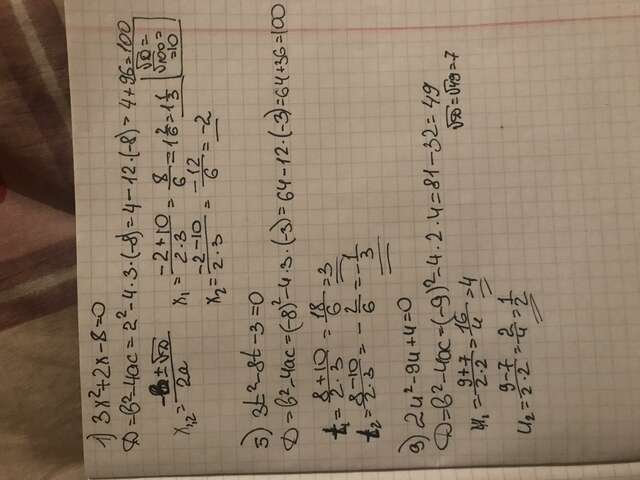 1) 3x²+2x-8=0
D=b²-4ac=2²-4·3·(-8)=4-12·(-8)=4+96=100
x₁,₂=-b±√D/2a
x₁=-2+10/2·3=8/6=1 2/6=1 1/3
√D=
√100=
=10
x₂=-2-10/2·3=-12/6=-2
5) 3t²-8t-3=0
D=b²-4ac=(-8)²-4·3·(-3)=64-12·(-3)=64+36=100
t₁=8+10/2·3=18/6=3
t₂=8-10/2·3=-2/6=-1/3
9) 2u²-9u+4=0
D=b²-4ac=(-9)²=4·2·4=81-32=49
√D=√49=7
u₁=9+7/2·2=16/4=4
u₂=9-7/2·2=2/4=1/2